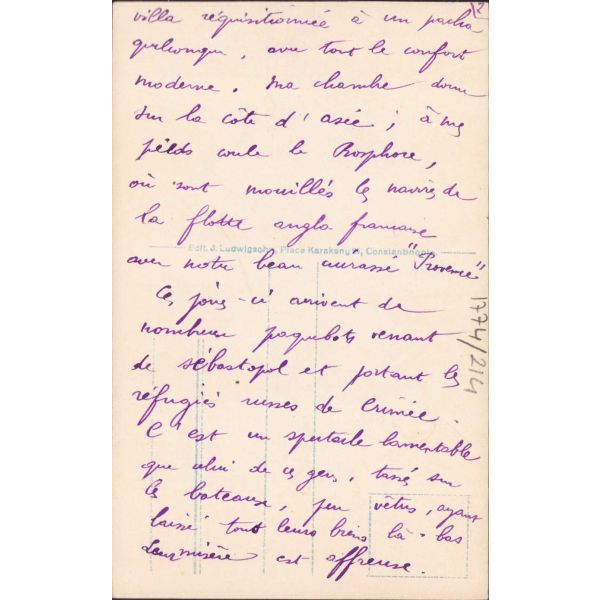 12
villa réquisitionnée à un pacha
quelconque, avec tout le confort
moderne. Ma chambre donne
sur la côte d'asie ; à mes
pieds coule le Bosphore,
où sont mouillés les navires de
la flotte anglo française
Edit. J. Ludwigsohn, Place Karakeny, Constantinople.
avec notre beau cuirassé "Provence"
Ces jours-ci arrivent de
nombreux paquebots venant
de Sébastopol et portant les
réfugiés russes de Crimée.
C'est un spectacle lamentable
que celui de ces gens, tassés sur
les bateaux, peu vêtus, ayant
laissé tout leurs biens là-bas
Leur misère est affreuse.
174/214